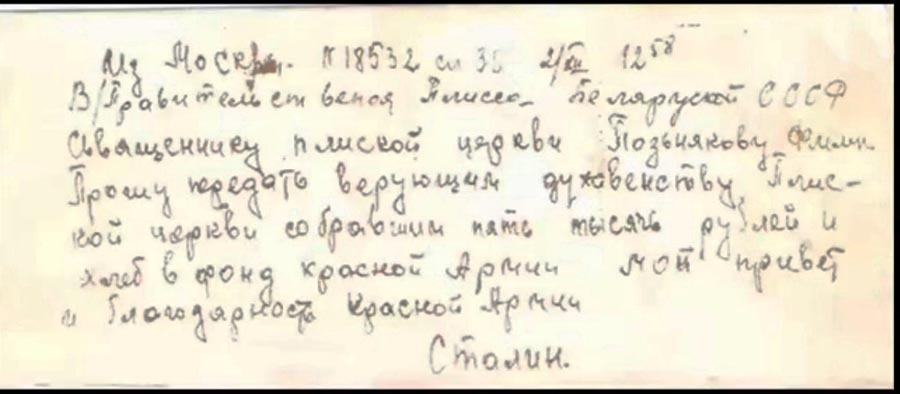 Из Москвы. N 18532 сл 35 2/XII 12 58
В/Правительственоя Плисса Беляруской СССР
Священнику плиской церкви Позьнякову Филип
Прошу передать верующим духовенству Плис-
кой церкви собравшим пять тысячь рублей и
хлеб в фонд красной Армии мой привет
и благодарность Красной Армии
Сталин.